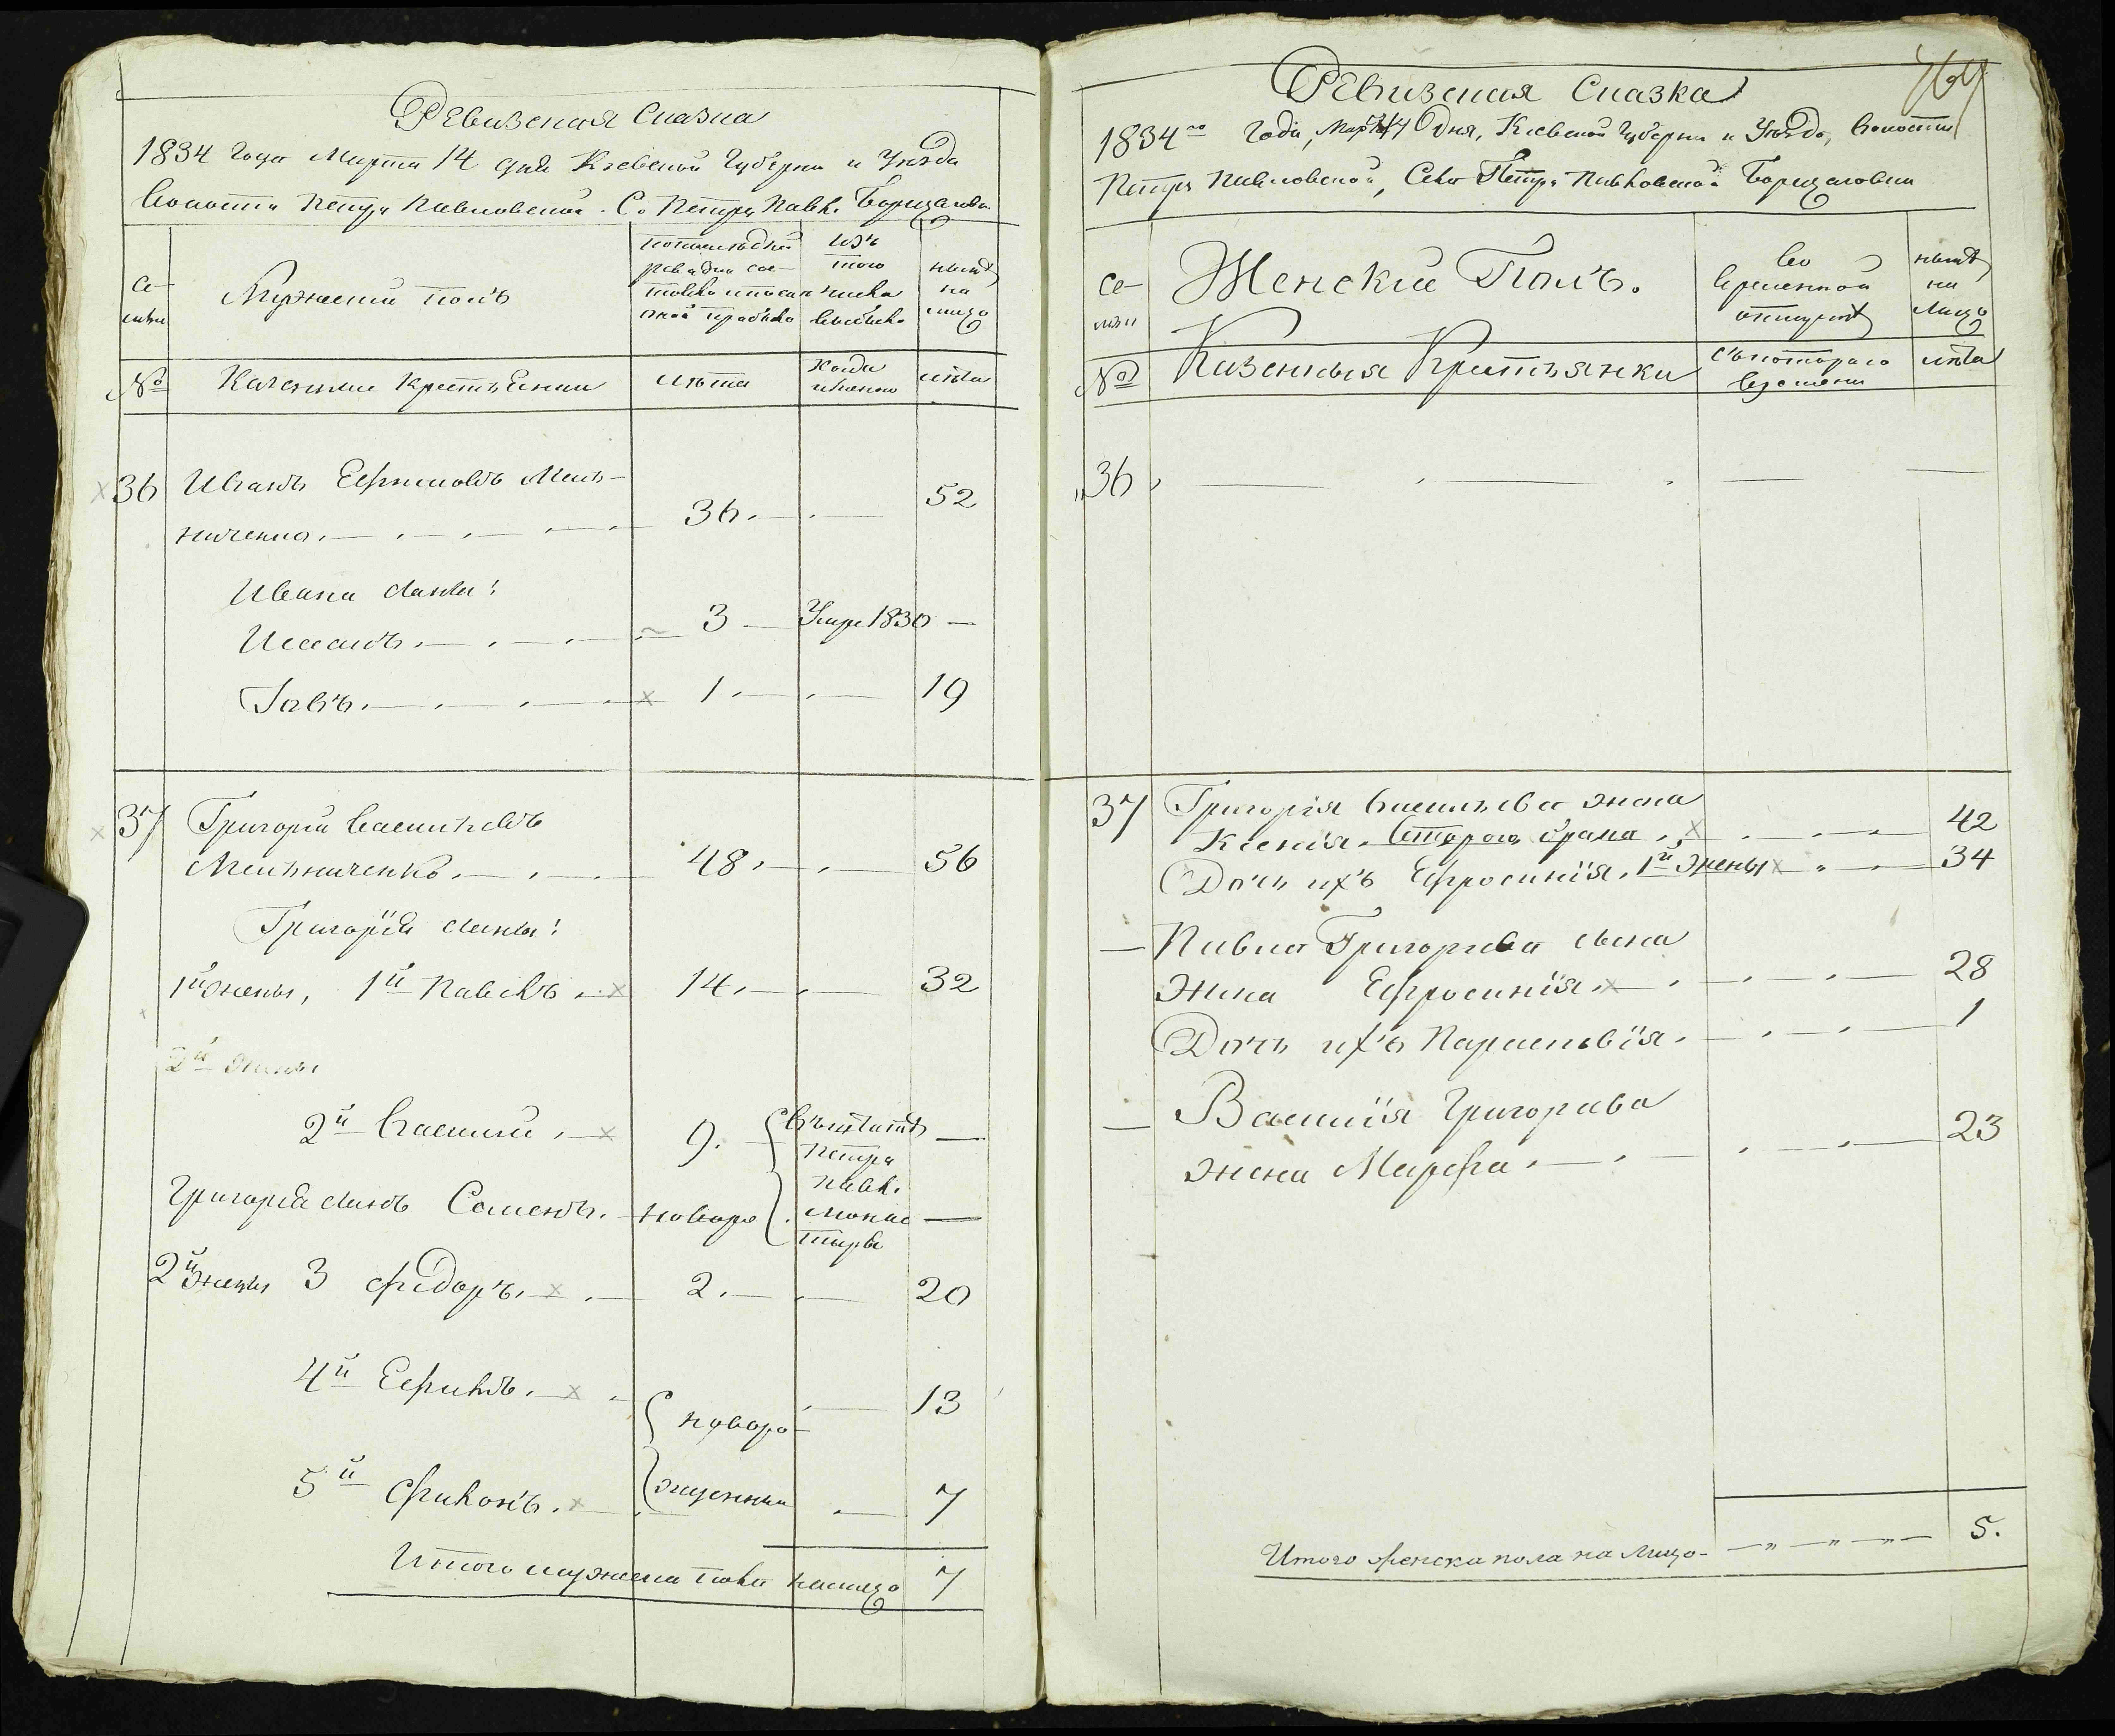 Ревизская Сказка
1834 года Марта 14 дня Киевской Губерни и Уезда
Волости Петру Павловской. С. Петру Павл. Борщаговки
Се-
мьи
Мужеский полъ
по последней
ревизии сос-
тояло и после
оной прибыло
изъ
того
числа
выбыло
ныне
на
лицо
№
Казенные Крестьяние
лета
когда
именно
лета
36 Иванъ Ефимовъ Мель-
ниченко 36 52
Ивана сыны:
Исаакъ 3 Умре 1830
Іовъ 1 19
37 Григорій Васильевъ
Мельниченко 48 56
Григорія сыны:
1й жены, 1й Павелъ 14 32
2й жены
2й Василій 9
въ штате
Петра
Павл.
монас
тыря
Григорія сынъ Семенъ новоро
2й жены 3 Фёдоръ 2 20
4й Ефимъ 13
новоро
5й Филонъ жденныи 7
Итого мужеска пола налицо 7
764
Ревизская Сказка
1834го Года, Марта 14 Дня, Киевской Губерни и Уезда, Волости
Петру Павловской, Села Петру Павловской Борщаговки
Се-
мьи
Женскій Полъ.
Во
временной
отлучке
ныне
на
лицо
№
Казенныя Крестьянки
съ котораго
времени
лета
36
37 Григорія Васильева жена
Ксенія, втораго брака 42
Дочь ихъ Ефросинія, 1й жены 34
Павла Григорьева сына
жена Ефросинія 28
Дочь ихъ Параскевія 1
Василія Григорьева
жена Марфа 23
Итого женска пола на лицо 5.